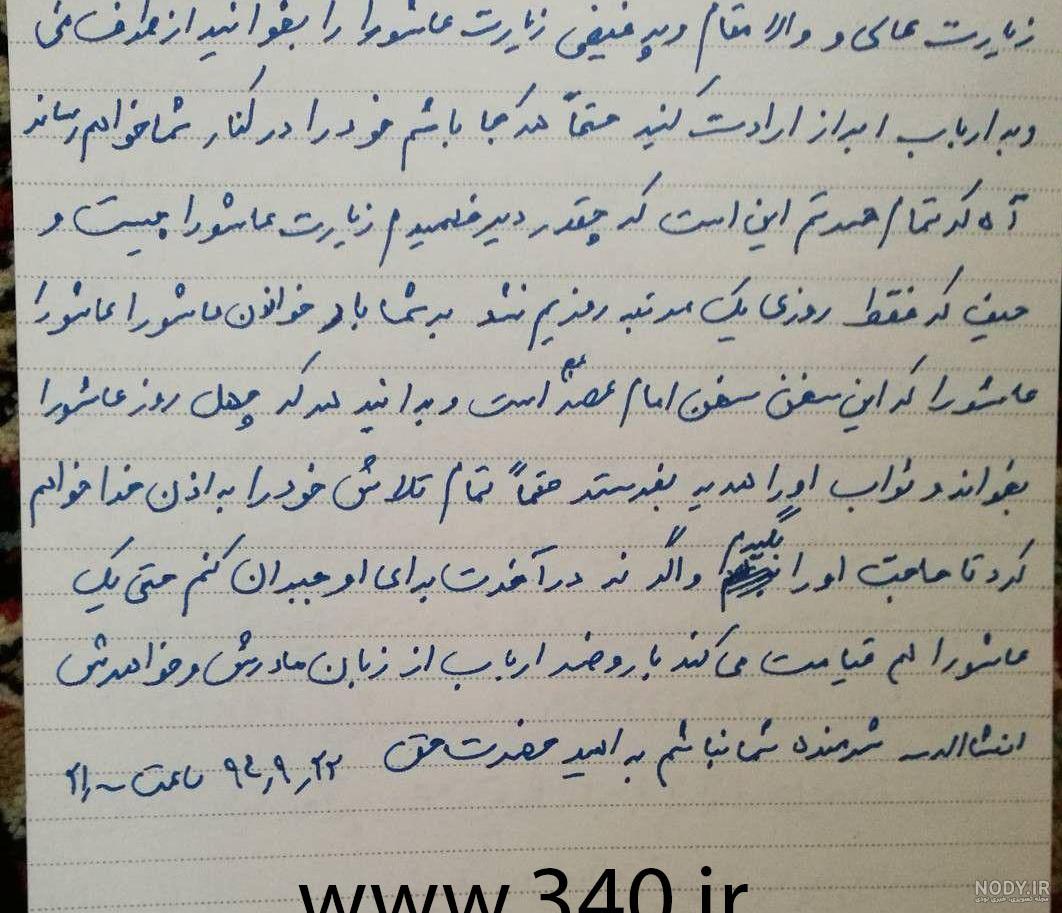 زیارت عالی و والا مقام و پر فیض زیارت عاشورا را بخوانید از طرف من
و به ارباب ابراز ارادت کنید حتماً هرکجا باشم خود را در کنار شما خواهم رساند
آه که تمام حسرتم این است که چقدر دیر فهمیدم زیارت عاشورا چیست و
حیف که فقط روزی یک مرتبه روزیم شد بر شما باد خواندن عاشورا عاشورا
عاشورا که این سخن سخن امام عصر عج است و بدانید هرکه چهل روز عاشورا
بخواند و ثواب او را هدیه بفرستد حتماً تمام تلاش خود را به اذن خدا خواهم
کرد تا حاجت او را بگیرم و اگر نه در آخرت برای او جبران کنم حتی یک
عاشورا هم قیامت می کند با روضه ارباب از زبان مادرش و خواهرش
انشاالله شرمنده شما نباشم به امید حضرت حق ۹۴٫۹٫۲۲ ساعت
www.340.ir
NODY.IR